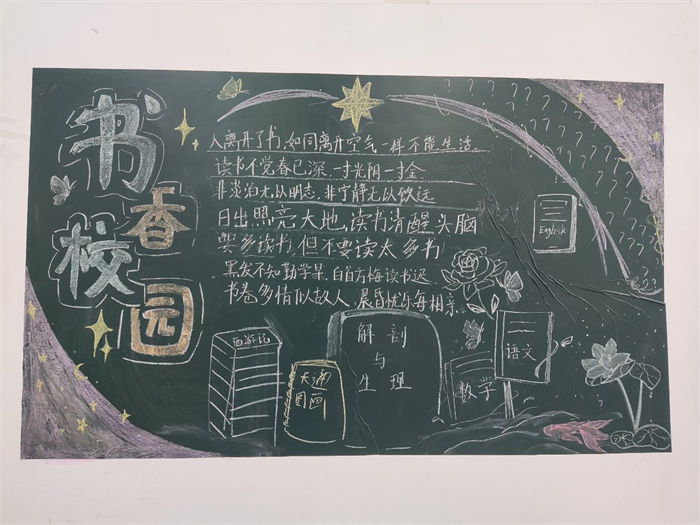 书香校园
人离开了书,如同离开空气一样不能生活.
读书不觉春已深,一寸光阴一寸金
非淡泊无以明志,非宁静无以致远
日出照亮大地,读书清醒头脑
要多读书,但不要读太多书
黑发不知勤学早,白首方悔读书迟
书卷多情似故人,晨昏忧乐每相亲.
English
西游记
天浦
图画
解剖
与
生理
数学
语文